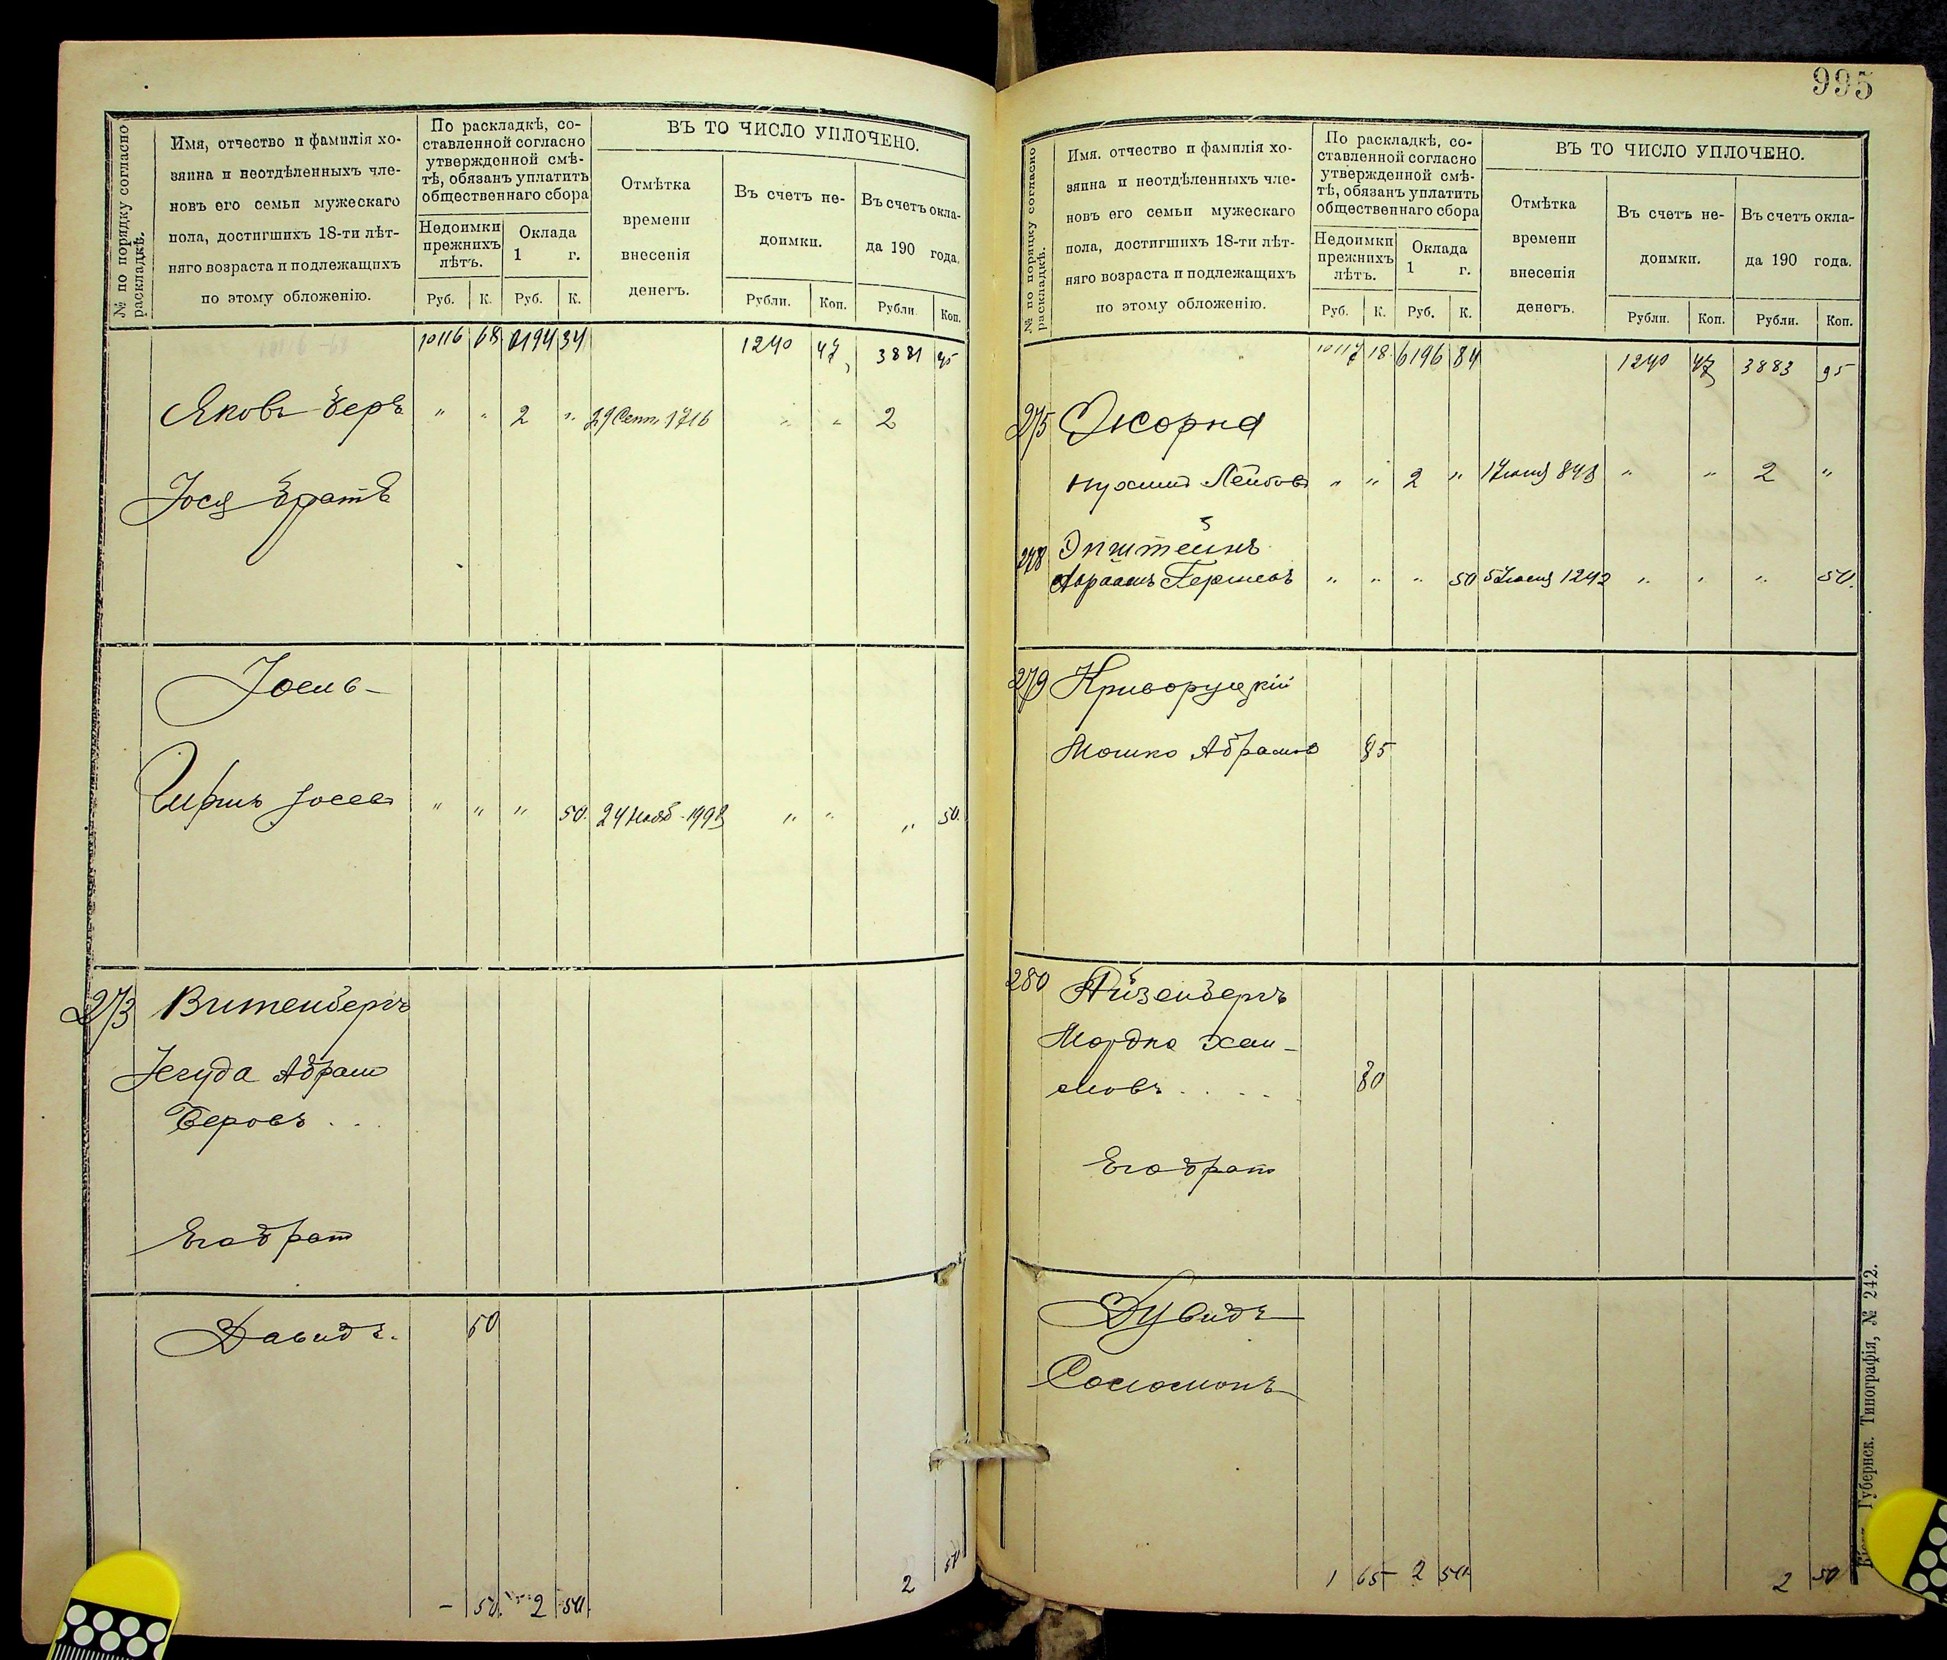 № по порядку согласно раскладкѣ.
Имя, отчество и фамилія хо-
зяина и неотдѣленныхъ чле-
новъ его семьи мужескаго
пола, достигшихъ 18-ти лѣт-
няго возраста и подлежащихъ
по этому обложенію.
По раскладкѣ, со-
ставленной согласно
утвержденной смѣ-
тѣ, обязанъ уплатить
общественнаго сбора
Недоимки
прежнихъ
лѣтъ.
Оклада
1 г.
Руб. К. Руб. К.
ВЪ ТО ЧИСЛО УПЛОЧЕНО.
Отмѣтка
времени
внесенія
денегъ.
Въ счетъ не-
доимки.
Въ счетъ окла-
да 190 года.
Рубли. Коп. Рубли Коп.
10116 68 6194 34 1240 47 3881 45
Яковъ Беръ " " 2 " 29 Сент 1716 " " 2
Іося братъ
Іосель
Гиршъ Іосев " " " 50. 24 Нояб 1993 " " " 50.
273 Витенбергъ
Іегуда Абрам
Беровъ . . .
Его брат
Давидъ. 50
- 50. 2 50. 2 50
995
№ по порядку согласно раскладкѣ.
Имя. отчество и фамилія хо-
зяина и неотдѣленныхъ чле-
новъ его семьи мужескаго
пола, достигшихъ 18-ти лѣт-
няго возраста и подлежащихъ
по этому обложенію.
По раскладкѣ, со-
ставленной согласно
утвержденной смѣ-
тѣ, обязанъ уплатить
общественнаго сбора
Недоимки
прежнихъ
лѣтъ.
Оклада
1 г.
Руб. К. Руб. К.
ВЪ ТО ЧИСЛО УПЛОЧЕНО.
Отмѣтка
времени
внесенія
денегъ.
Въ счетъ не-
доимки.
Въ счетъ окла-
да 190 года.
Рубли. Коп. Рубли. Коп.
10117 18. 6196 84 1240 47 3883 95
275
Нухим Лейбов " " 2 " 848 " " 2 "
278 Эпштейнъ
Абрамъ Гершков " " " 50 1242 " " " 50.
279 Криворуцкій
Мошко Абрамов 85
280 Айзенбергъ
Мордко Хаи-
мовъ . . . . 80
Его брат
Дувидъ
Соломонъ
1 65 2 50 2 50
Губернск. Типографія, № 242.